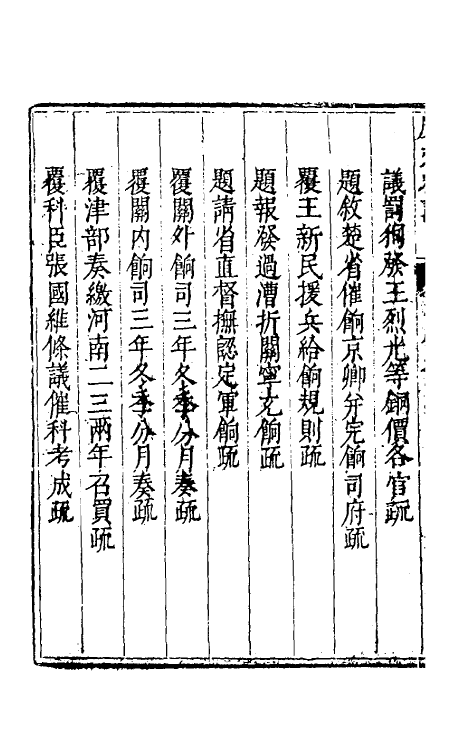 議罰狥發王烈光等銅價各官疏
題敘楚省催餉京卿弁完餉司府疏
覆王新民援兵給餉規則疏
題報發過漕折關寧支餉疏
題請省直督撫認定軍餉疏
覆關外餉司三年冬季分月奏疏
覆關內餉司三年冬季分月奏疏
覆津部奏繳河南二三兩年召買疏
覆科臣張國維條議催科考成疏